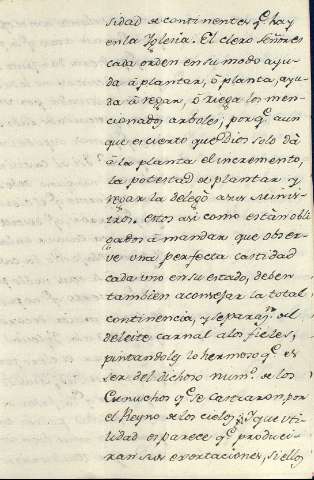 sidad de continentes q.e hay
en la Yglesia. El clero Señores
cada orden en su modo ayu-
da á plantar, ó planta, ayu-
da á regar, ó riega los men-
cionados arboles; porq.e aun
que es cierto que Dios solo dá
á la planta el incremento,
la potestad de plantar y
regar la delegó á sus Minis-
tros. estos asi como están obli
gados á mandar que obser-
ve una perfecta castidad
cada uno en su estado, deben
tambien aconsejar la total
continencia, y separaz.n del
deleite carnal a los fieles,
pintandoles lo hermoso q.e es
ser del dichoso num.o de los
Eunuchos q.e se castraron por
el Reyno de los cielos; Y que uti-
lidad os parece q.e produci-
ran sus exortaciones, si ellos